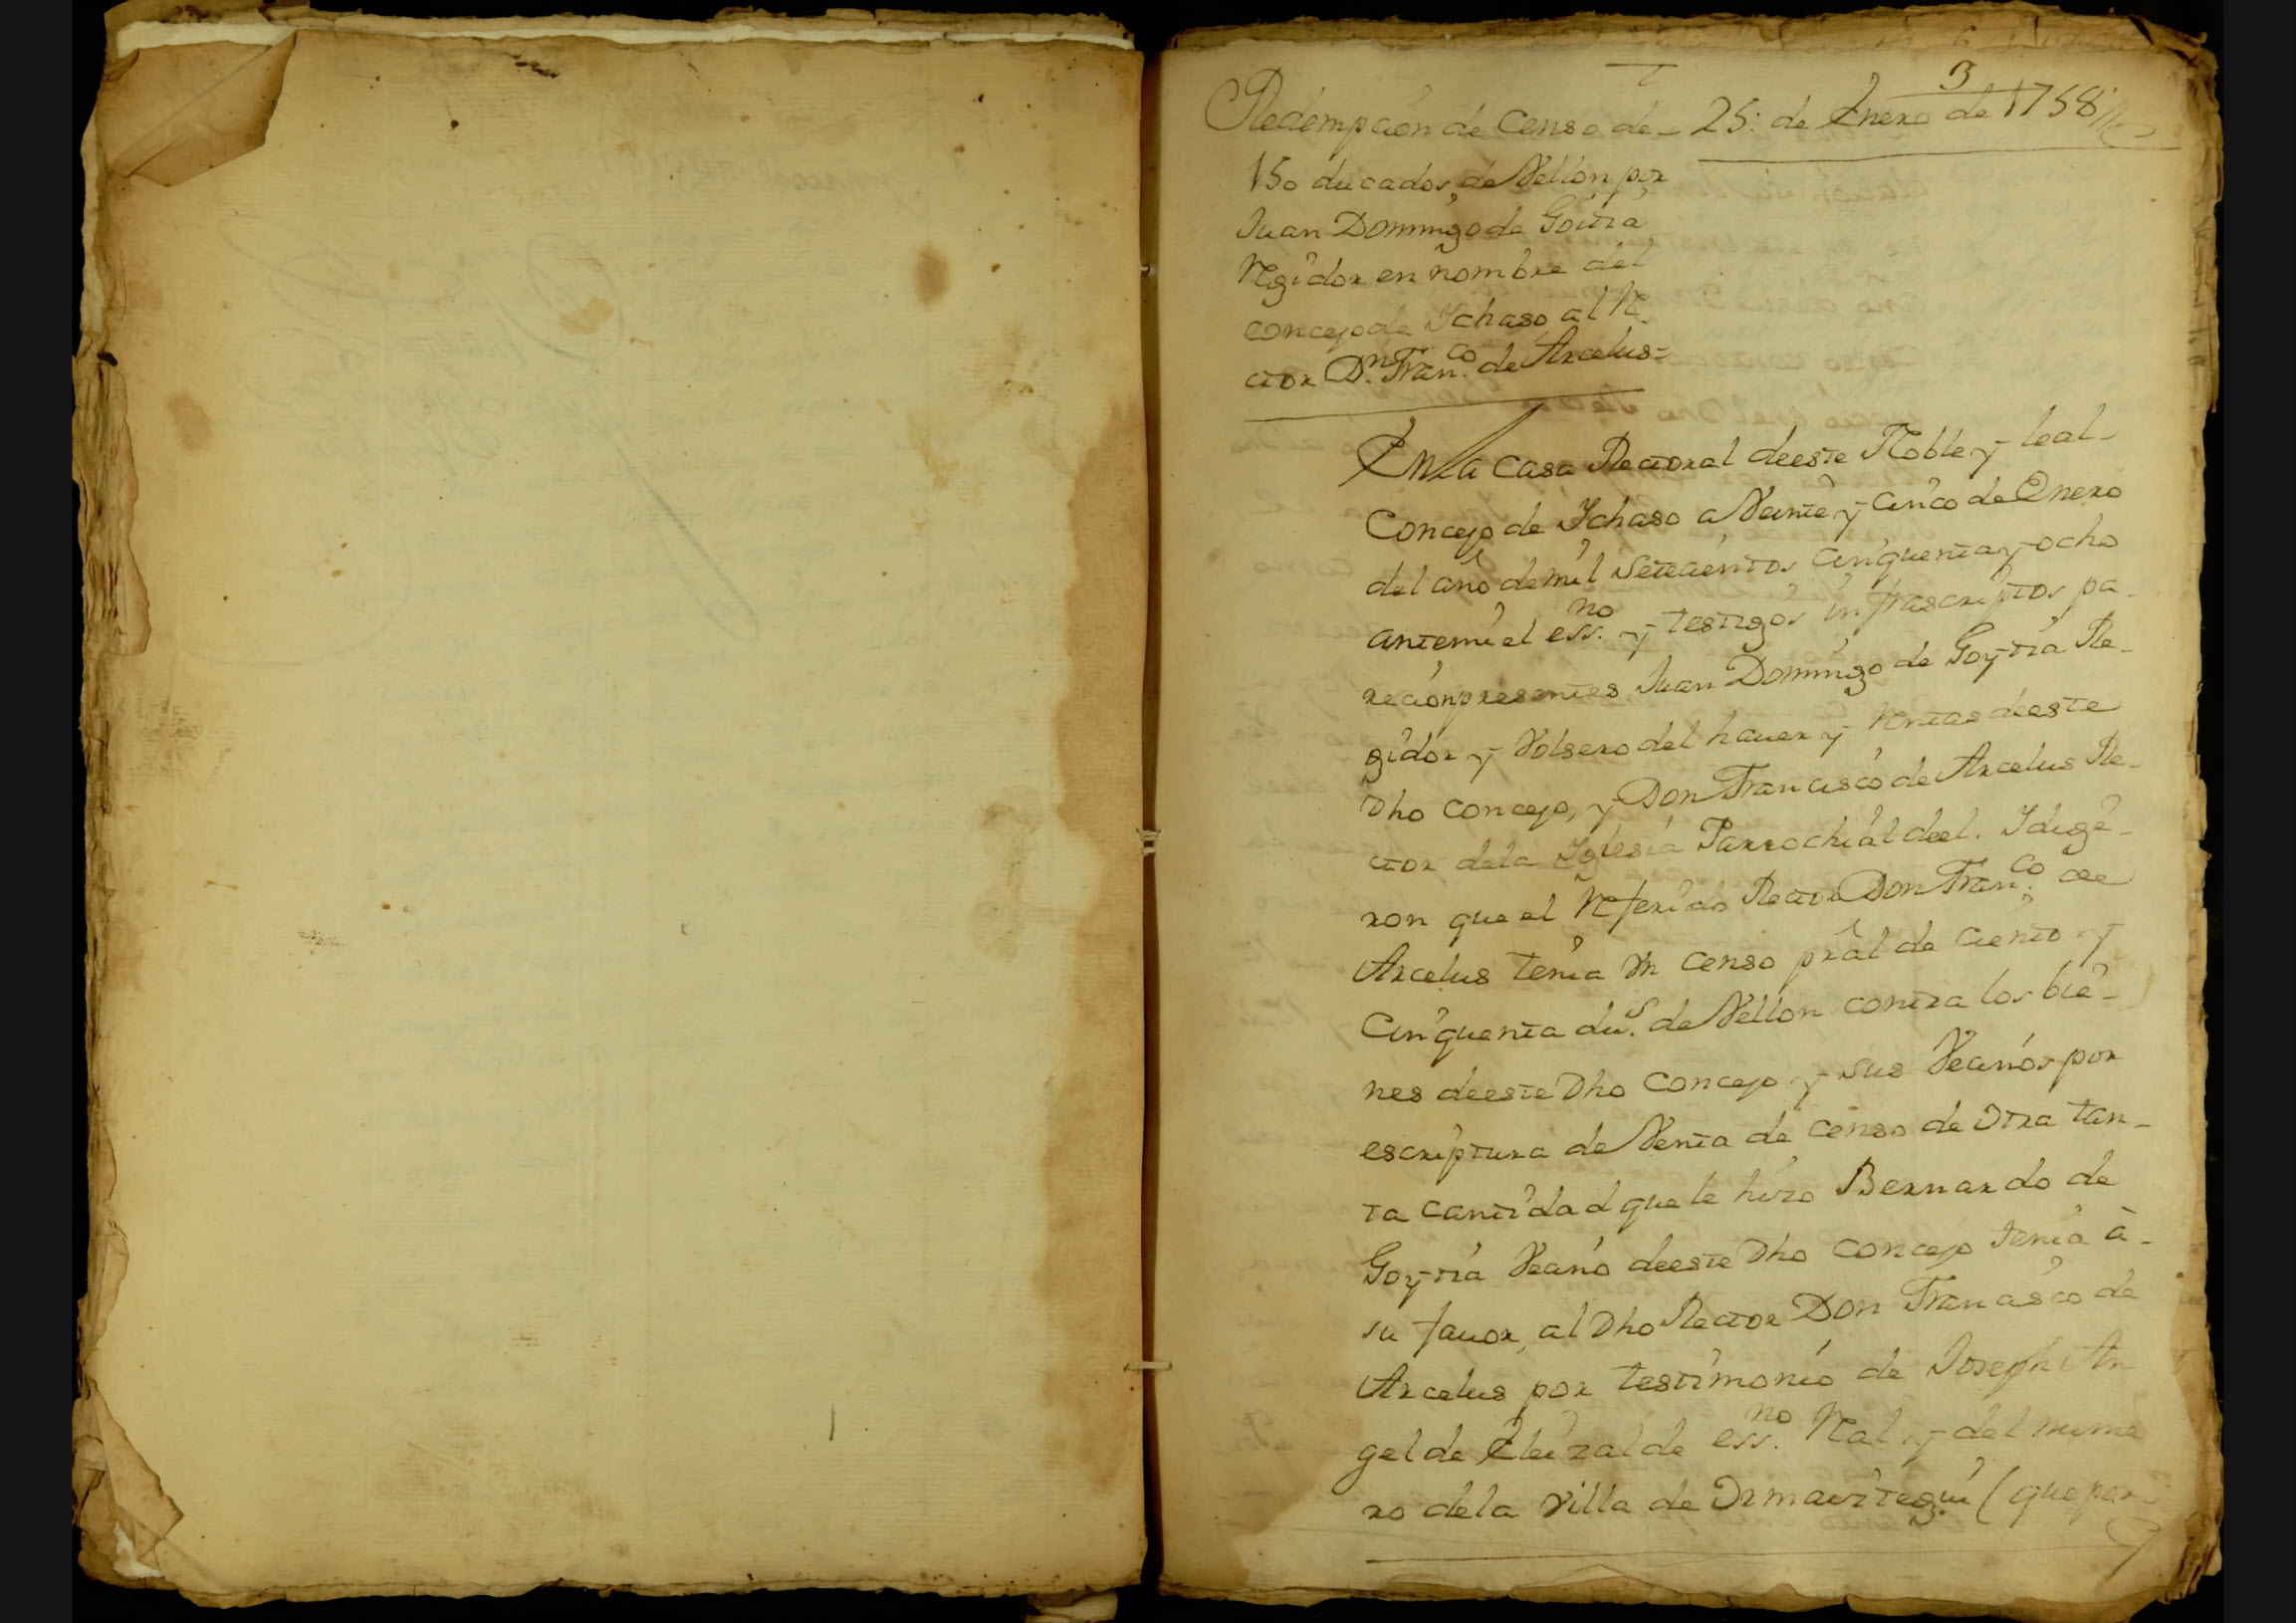 3
Redempcion de Censo de - 25: de Enero de 1758
150 ducados de Vellon por
Juan Domingo de Goitia
Regidor en nombre del
concejo de Ychaso al Re
ctor Dn. Franco. de Arcelus =
En la Casa Rectoral deeste Noble y leal
Concejo de Ychaso a Veinte y Cinco de Enero
del año de mil Setecientos cinquenta y ocho
antemi el essno. y testigos infrascriptos pa
recion presentes Juan Domingo de Goytia Re-
gidor y Volsero del hauer y Rentas deeste
Dho Concejo, y Don Francisco de Arcelus Re-
ctor dela Yglesia Parrochial deel. Y dige-
ron que el Referido Rector Don Franco. de
Arcelus tenia Vn censo pral de ciento y
Cinquenta dus. de Vellon contra los bie-
nes deeste Dho Concejo y sus Vecinos por
escriptura de Venta de censo de otra tan-
ta cantidad que le hizo Bernardo de
Goytia Vecino deeste Dho Concejo tenia à
su fauor, al Dho Rector Don Francisco de
Arcelus por testimonio de Joseph An
gel de Eleizalde essno. Real y del nume
ro dela Villa de Ormaiztegui (que par